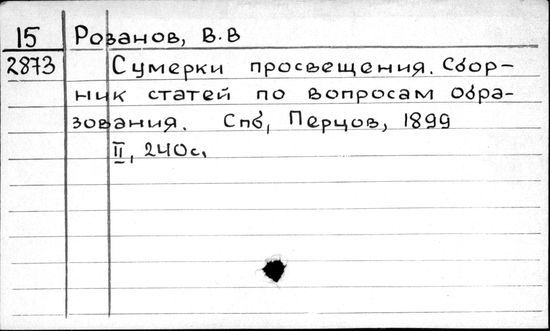 15 Розанов, В.В
2873 Сумерки просвещения. Сбор-
ник статей по вопросам обра-
зования. Спб, Перцов, 1899
II, 240с.